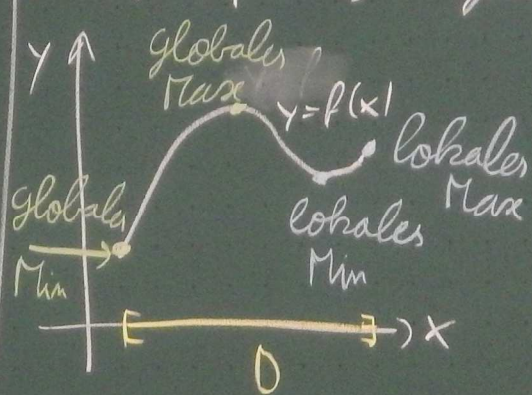 y
globales
Max
y=f(x)
lokales
Max
globales
Min
lokales
Min
x
D